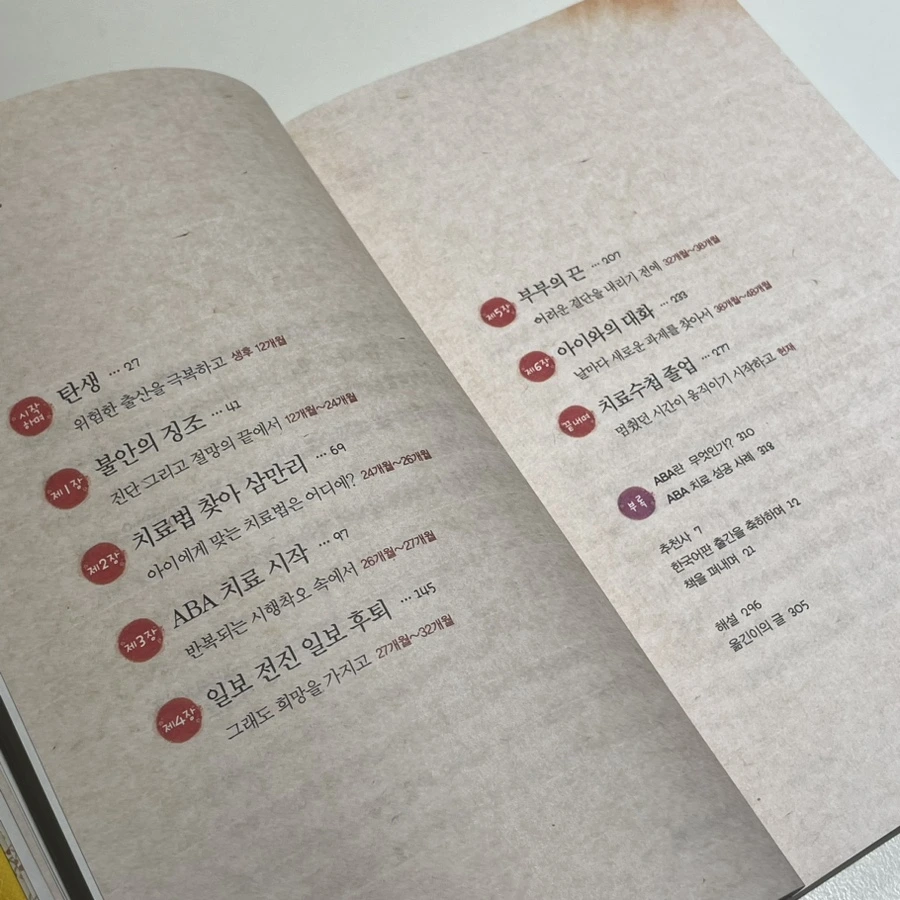 시작
하며
탄생 … 27
위험한 출산을 극복하고 생후 12개월
제1장
불안의 징조 … 41
진단 그리고 절망의 끝에서 12개월~24개월
제2장
치료법 찾아 삼만리 … 69
아이에게 맞는 치료법은 어디에? 24개월~26개월
제3장
ABA 치료 시작 … 97
반복되는 시행착오 속에서 26개월~27개월
제4장
일보 전진 일보 후퇴 … 145
그래도 희망을 가지고 27개월~32개월
제5장
부부의 끈 … 207
어려운 결단을 내리기 전에 32개월~38개월
제6장
아이와의 대화 … 233
날마다 새로운 과제를 찾아서 38개월~48개월
끝내며
치료수첩 졸업 … 277
멈췄던 시간이 움직이기 시작하고 현재
부록
ABA란 무엇인가? 310
ABA 치료 성공 사례 318
추천사 7
한국어판 출간을 축하하며 12
책을 펴내며 21
해설 296
옮긴이의 글 305